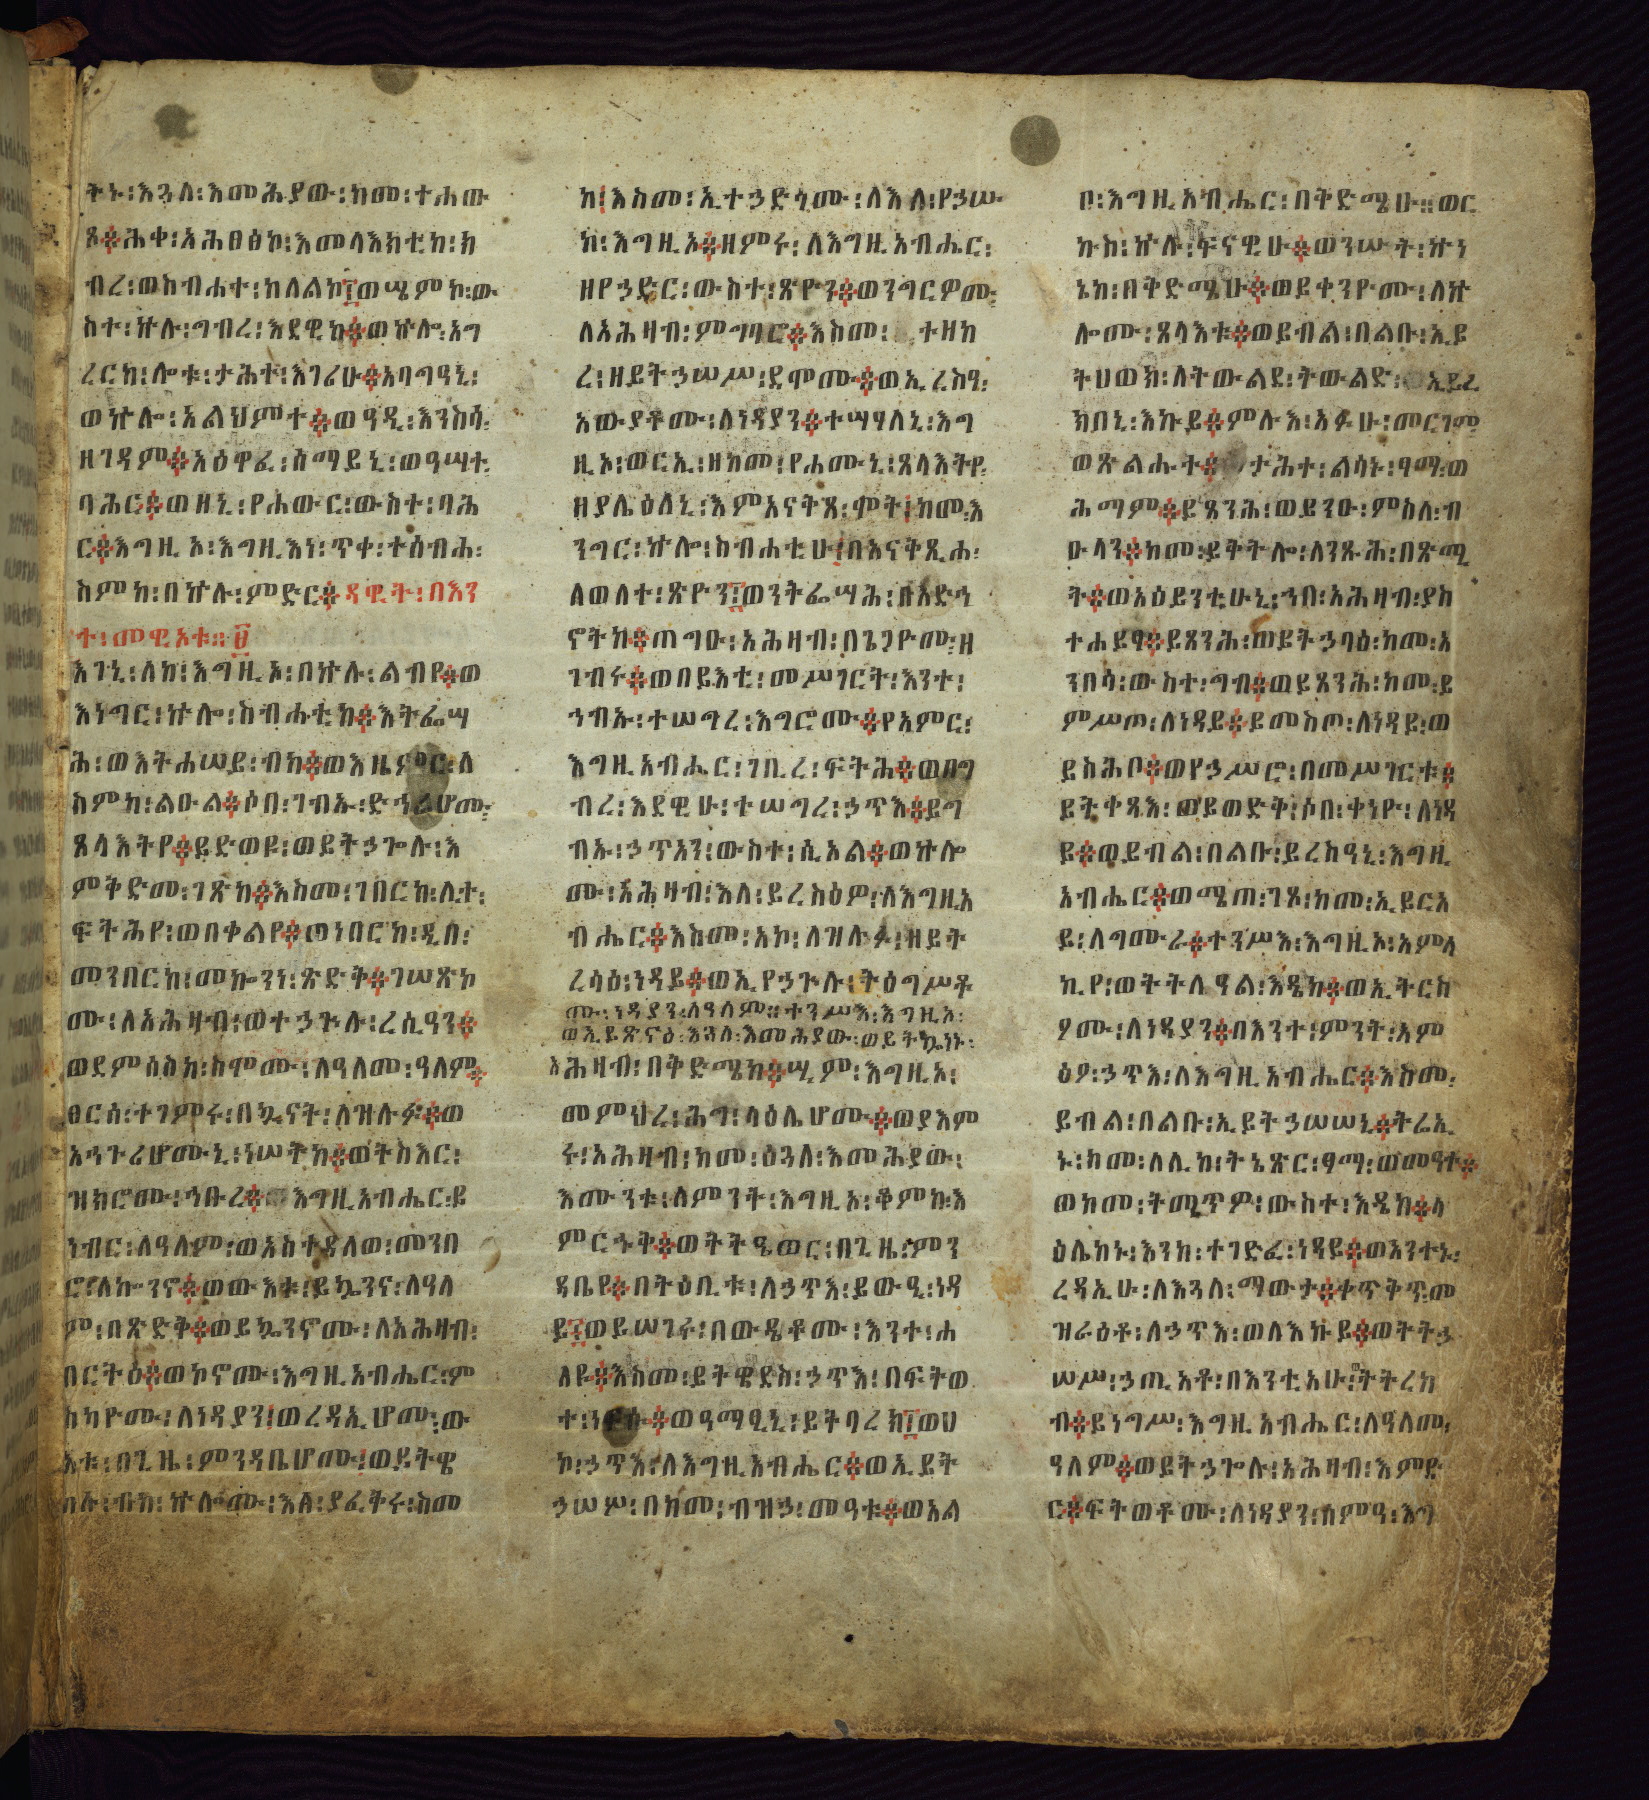 ትኑ፡እጓለ፡እመሕያው፡ከመ፡ተሐው
ጾ፨ሕቀ፡አሕፀፅኮ፡እመላእክቲከ፡ክ
ብረ፡ወስብሐተ፡ከለልኮ፤ወሤምኮ፡ው
ስተ፡ኵሉ፡ግብረ፡እደዊከ፨ወኵሎ፡አግ
ረርከ፡ሎቱ፡ታሕተ፡እገሪሁ፨አባግዓኒ፡
ወኵሎ፡አልህምተ፨ወዓዲ፡እንስሳ፡
ዘገዳም፨አዕዋፈ፡ሰማይኒ፡ወዓሣተ፡
ባሕር፨ወዘኒ፡የሐውር፡ውስተ፡ባሕ
ር፨እግዚኦ፡እግዚእነ፡ጥቀ፡ተሰብሐ፡
ስምከ፡በኵሉ፡ምድር፨ዳዊት፡በእን
ተ፡መዊአቱ፡፡፱
እገኒ፡ለከ፡እግዚኦ፡በኵሉ፡ልብየ፨ወ
እነግር፡ኵሎ፡ስብሐቲከ፨እትፌሣ
ሕ፡ወእትሐሠይ፡ብከ፨ወእዜምር፡ለ
ስምከ፡ልዑል፨ሶበ፡ገብኡ፡ድኅሪሆሙ፡
ጸላእትየ፨ይድወዩ፡ወይትኃጐሉ፡እ
ምቅድመ፡ገጽከ፨እስመ፡ገበርከ፡ሊተ፡
ፍትሕየ፡ወበቀልየ፨ወነበርከ፡ዲበ፡
መንበርከ፡መኰንነ፡ጽድቅ፨ገሠጽኮ
ሙ፡ለአሕዛብ፡ወተኃጕሉ፡ረሲዓን፨
ወደምሰስከ፡ስሞሙ፡ለዓለመ፡ዓለም፨
ፀርሰ፡ተገምሩ፡በኲናት፡ለዝሉፉ፨ወ
አኅጉሪሆሙኒ፡ነሠትከ፨ወትስእር፡
ዝክሮሙ፡ኅቡረ፨እግዚአብሔር፡ይ
ነብር፡ለዓለም፡ወአስተዳለወ፡መንበ
ሮ፡ለኰንኖ፨ወውእቱ፡ይኴንና፡ለዓለ
ም፡በጽድቅ፨ወይኴንኖሙ፡ለአሕዛብ፡
በርትዕ፨ወኮኖሙ፡እግዚአብሔር፡ም
ስካዮሙ፡ለነዳያን፤ወረዳኢሆሙ፡ው
እቱ፡በጊዜ፡ምንዳቤሆሙ፤ወይትዌ
ከሉ፡ብከ፡ኵሎሙ፡እለ፡ያፈቅሩ፡ስመ
ከ፤እስመ፡ኢተኃድጎሙ፡ለእለ፡የኃሡ
ከ፡እግዚኦ፨ዘምሩ፡ለእግዚአብሔር፡
ዘየኃድር፡ውስተ፡ጽዮን፨ወንግርዎሙ፡
ለአሕዛብ፡ምግባሮ፨እስመ፡ተዘከ
ረ፡ዘይትኃሠሥ፡ደሞሙ፨ወኢረስዓ፡
አውያቶሙ፡ለነዳያን፨ተሣሃለኒ፡እግ
ዚኦ፡ወርኢ፡ዘከመ፡የሐሙኒ፡ጸላእትየ፡
ዘያሌዕለኒ፡እምአናቅጸ፡ሞት፤ከመ፡እ
ንግር፡ኵሎ፡ስብሐቲሁ፤በአናቅጺሐ፡
ለወለተ፡ጽዮን፤ወንትፌሣሕ፡በአድኅ
ኖትከ፨ጠግዑ፡አሕዛብ፡በጌጋዮሙ፡ዘ
ገብሩ፨ወበይእቲ፡መሥገርት፡እንተ፡
ኀብኡ፡ተሠግረ፡እግሮሙ፨የአምር፡
እግዚአብሔር፡ገቢረ፡ፍትሕ፨ወበግ
ብረ፡እደዊሁ፡ተሠግረ፡ኃጥእ፨ይግ
ብኡ፡ኃጥአን፡ውስተ፡ሲኦል፨ወኵሎ
ሙ፡አሕዛብ፡እለ፡ይረስዕዎ፡ለእግዚአ
ብሔር፨እስመ፡አኮ፡ለዝሉፉ፡ዘይት
ረሳዕ፡ነዳይ፨ወኢየኃጕሉ፡ትዕግሥቶ
ሙ፡ነዳያን፡ለዓለም፡፡ተንሥእ፡እግዚኦ፡
ወኢይጽናዕ፡እጓለ፡እመሕያው፡ወይትኴነኑ፡
አሕዛብ፡በቅድሜከ፨ሢም፡እግዚኦ፡
መምህረ፡ሕግ፡ላዕሌሆሙ፨ወያእም
ሩ፡አሕዛብ፡ከመ፡ዕጓለ፡እመሕያው፡
እሙንቱ፡ለምንት፡እግዚኦ፡ቆምከ፡እ
ምርኁቅ፨ወትትዔወር፡በጊዜ፡ምን
ዳቤየ፨በትዕቢቱ፡ለኃጥእ፡ይውዒ፡ነዳ
ይ፤ወይሠገሩ፡በውዴቶሙ፡እንተ፡ሐ
ለዩ፨እስመ፡ይትዌደስ፡ኃጥእ፡በፍትወ
ተ፡ነፍሱ፨ወዓማፂኒ፡ይትባረክ፤ወሀ
ኮ፡ኃጥእ፡ለእግዚአብሔር፨ወኢይት
ኃሠሦ፡በከመ፡ብዝኃ፡መዓቱ፨ወአል
ቦ፡እግዚአብሔር፡በቅድሜሁ፡፡ወር
ኩስ፡ኵሉ፡ፍናዊሁ፨ወንሡት፡ኵነ
ኔከ፡በቅድሜሁ፨ወይቀንዮሙ፡ለኵ
ሎሙ፡ጸላእቱ፨ወይብል፡በልቡ፡ኢይ
ትሀወክ፡ለትውልደ፡ትውልድ፡ኢይረ
ክበኒ፡እኩይ፨ምሉእ፡አፉሁ፡መርገም፡
ወጽልሑተ፨ታሕተ፡ልሳኑ፡ፃማ፡ወ
ሕማም፨ይጸንሕ፡ወይንዑ፡ምስለ፡ብ
ዑላን፨ከመ፡ይቅትሎ፡ለንጹሕ፡በጽሚ
ት፨ወአዕይንቲሁኒ፡ኀበ፡አሕዛብ፡ያስ
ተሐይፃ፨ይጸንሕ፡ወይትኃባዕ፡ከመ፡አ
ንበሳ፡ውስተ፡ግብ፨ወይጸንሕ፡ከመ፡ይ
ምሥጦ፡ለነዳይ፨ይመስጦ፡ለነዳይ፡ወ
ይስሕቦ፨ወየኃሥሮ፡በመሥገርቱ፨
ይትቀጻእ፡ወይወድቅ፡ሶበ፡ቀነዮ፡ለነዳ
ይ፨ወይብል፡በልቡ፡ይረስዓኒ፡እግዚ
አብሔር፨ወሜጠ፡ገጾ፡ከመ፡ኢይርአ
ይ፡ለግሙራ፨ተንሥእ፡እግዚኦ፡አምላ
ኪየ፡ወትትለዓል፡እዴከ፨ወኢትርስ
ዖሙ፡ለነዳያን፨በእንተ፡ምንት፡አም
ዕዖ፡ኃጥእ፡ለእግዚአብሔር፨እስመ፡
ይብል፡በልቡ፡ኢይትኃሠሠኒ፨ትሬኢ
ኑ፡ከመ፡ለሊከ፡ትኔጽር፡ፃማ፡ወመዓተ፨
ወከመ፡ትሚጥዎ፡ውስተ፡እዴከ፨ላ
ዕሌከኑ፡እንከ፡ተገድፈ፡ነዳይ፨ወአንተኑ፡
ረዳኢሁ፡ለእጓለ፡ማውታ፨ቀጥቅጥ፡መ
ዝራዕቶ፡ለኃጥእ፡ወለእኩይ፨ወትትኃ
ሠሥ፡ኃጢአቶ፡በእንቲአሁ፡ኢትትረከ
ብ፨ይነግሥ፡እግዚአብሔር፡ለዓለመ፡
ዓለም፨ወይትኃጐሉ፡አሕዛብ፡እምድ
ር፨ፍትወቶሙ፡ለነዳያን፡ሰምዓ፡እግ